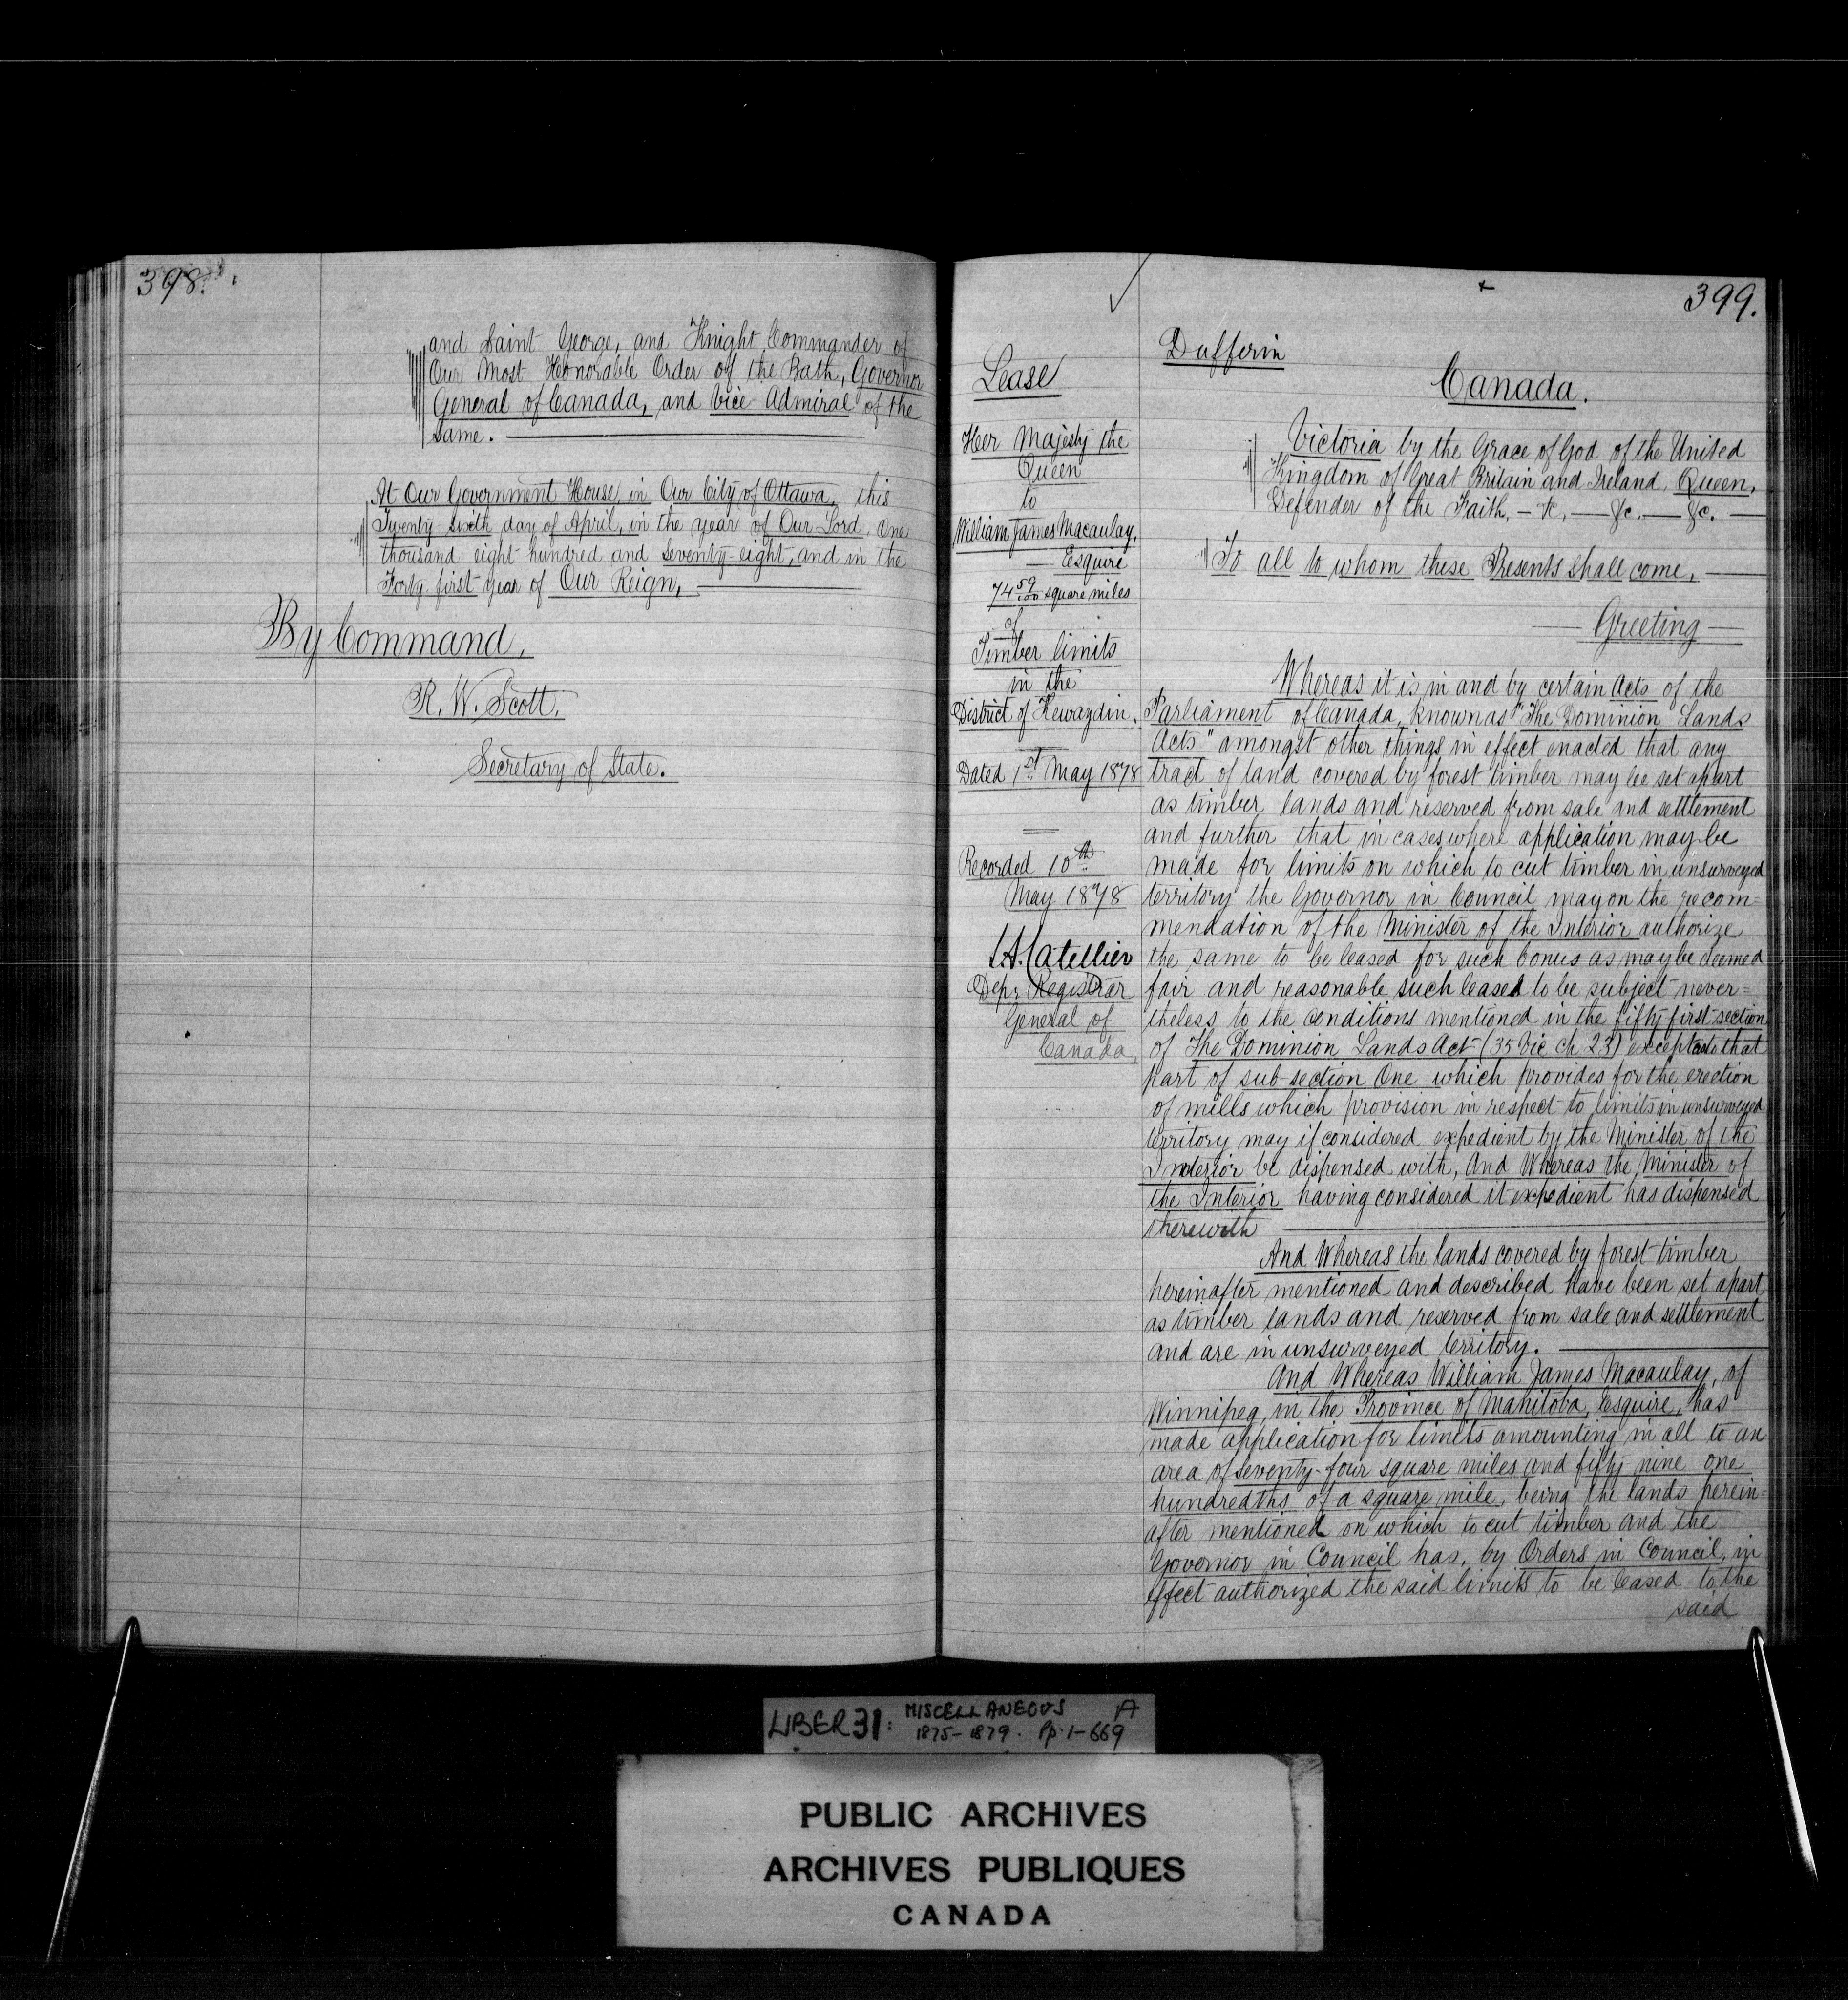 398.
and Saint George, and Knight Commander of
Our Most Honorable Order of the Bath, Governor
General of Canada, and Vice-Admiral of the
Same.
At Our Government House, in Our City of Ottawa, this
Twenty Sixth day of April, in the year of Our Lord, One
thousand eight hundred and seventy-eight, and in the
Forty first year of Our Reign,
By Command,
R. W. Scott,
Secretary of State.
399.
Lease
Her Majesty the
Queen
to
William James Macaulay,
Esquire
74 59/100 square miles
of
Timber limits
in the
District of Kewaydin.
Dated 1st May 1878
Recorded 10th
May 1878
L.A. Catellier
Depy Registrar
General of
Canada,
Dufferin
Canada.
Victoria by the Grace of God of the United
Kingdom of Great Britain and Ireland, Queen,
Defender of the Faith, - &c, — &c. — &c. —
To all to whom these Presents shall come, —
— Greeting —
Whereas it is in and by certain Acts of the
Parliament of Canada, known as "The Dominion Lands
Acts" amongst other things in effect enacted that any
tract of land covered by forest timber may be set apart
as timber lands and reserved from sale and settlement
and further that in cases where application may be
made for limits on which to cut timber in unsurveyed
territory the Governor in Council may on the recom=
mendation of the Minister of the Interior authorize
the same to be leased for such bonus as may be deemed
fair and reasonable such leases to be subject never=
theless to the conditions mentioned in the fifty first section
of The Dominion Lands Act (35 Vic ch 23) except as to that
part of sub-section One which provides for the erection
of mills which provision in respect to limits in unsurveyed
territory may if considered expedient by the Minister of the
Interior be dispensed with, And Whereas the Minister of
the Interior having considered it expedient has dispensed
therewith
And Whereas the lands covered by forest timber
hereinafter mentioned and described have been set apart
as timber lands and reserved from sale and settlement
and are in unsurveyed territory.
And Whereas William James Macaulay, of
Winnipeg, in the Province of Manitoba, Esquire, has
made application for limits amounting in all to an
area of seventy-four square miles and fifty-nine one
hundredths of a square mile, being the lands herein=
after mentioned on which to cut timber and the
Governor in Council has, by Orders in Council, in
effect authorized the said limits to be leased to the
said
LIBER 31: MISCELLANEOUS A
1875-1879. Pp. 1-669
PUBLIC ARCHIVES
ARCHIVES PUBLIQUES
CANADA